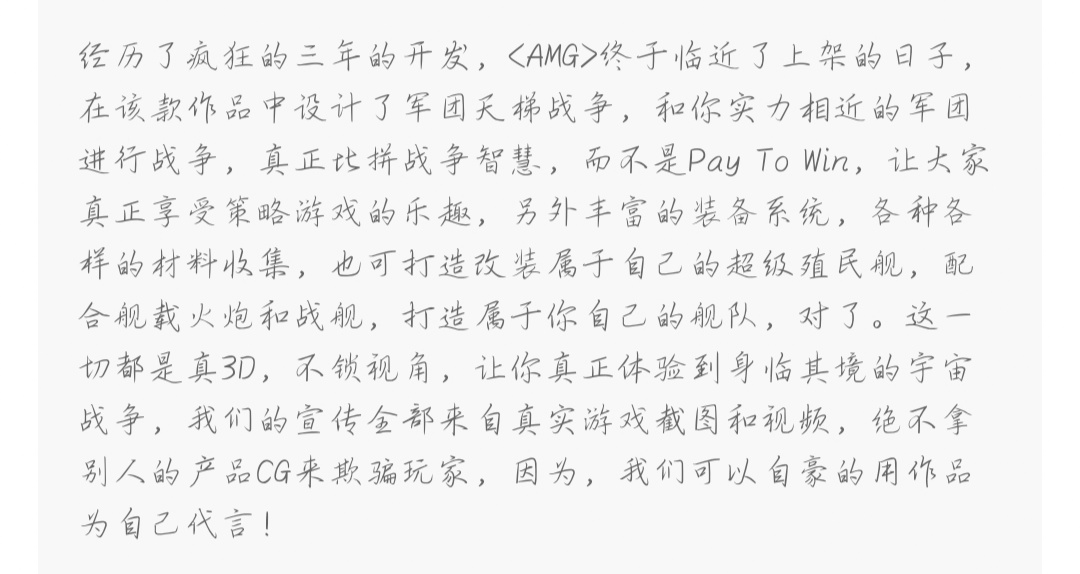 经历了疯狂的三年的开发，<AMG>终于临近了上架的日子，
在该款作品中设计了军团天梯战争，和你实力相近的军团
进行战争，真正比拼战争智慧，而不是Pay To Win，让大家
真正享受策略游戏的乐趣，另外丰富的装备系统，各种各
样的材料收集，也可打造改装属于自己的超级殖民舰，配
合舰载火炮和战舰，打造属于你自己的舰队，对了。这一
切都是真3D，不锁视角，让你真正体验到身临其境的宇宙
战争，我们的宣传全部来自真实游戏截图和视频，绝不拿
别人的产品CG来欺骗玩家，因为，我们可以自豪的用作品
为自己代言！